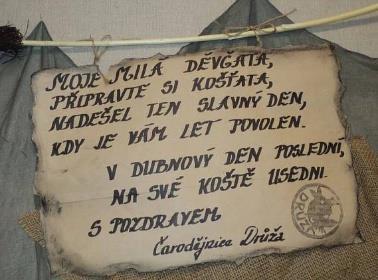 MOJE MILÁ DĚVČATA,
PŘIPRAVTE SI KOŠŤATA,
NADEŠEL TEN SLAVNÝ DEN,
KDY JE VÁM LET POVOLEN.
V DUBNOVÝ DEN POSLEDNÍ,
NA SVÉ KOŠTĚ USEDNI.
S POZDRAVEM
Čarodějnice Drůža
DRŮŽA